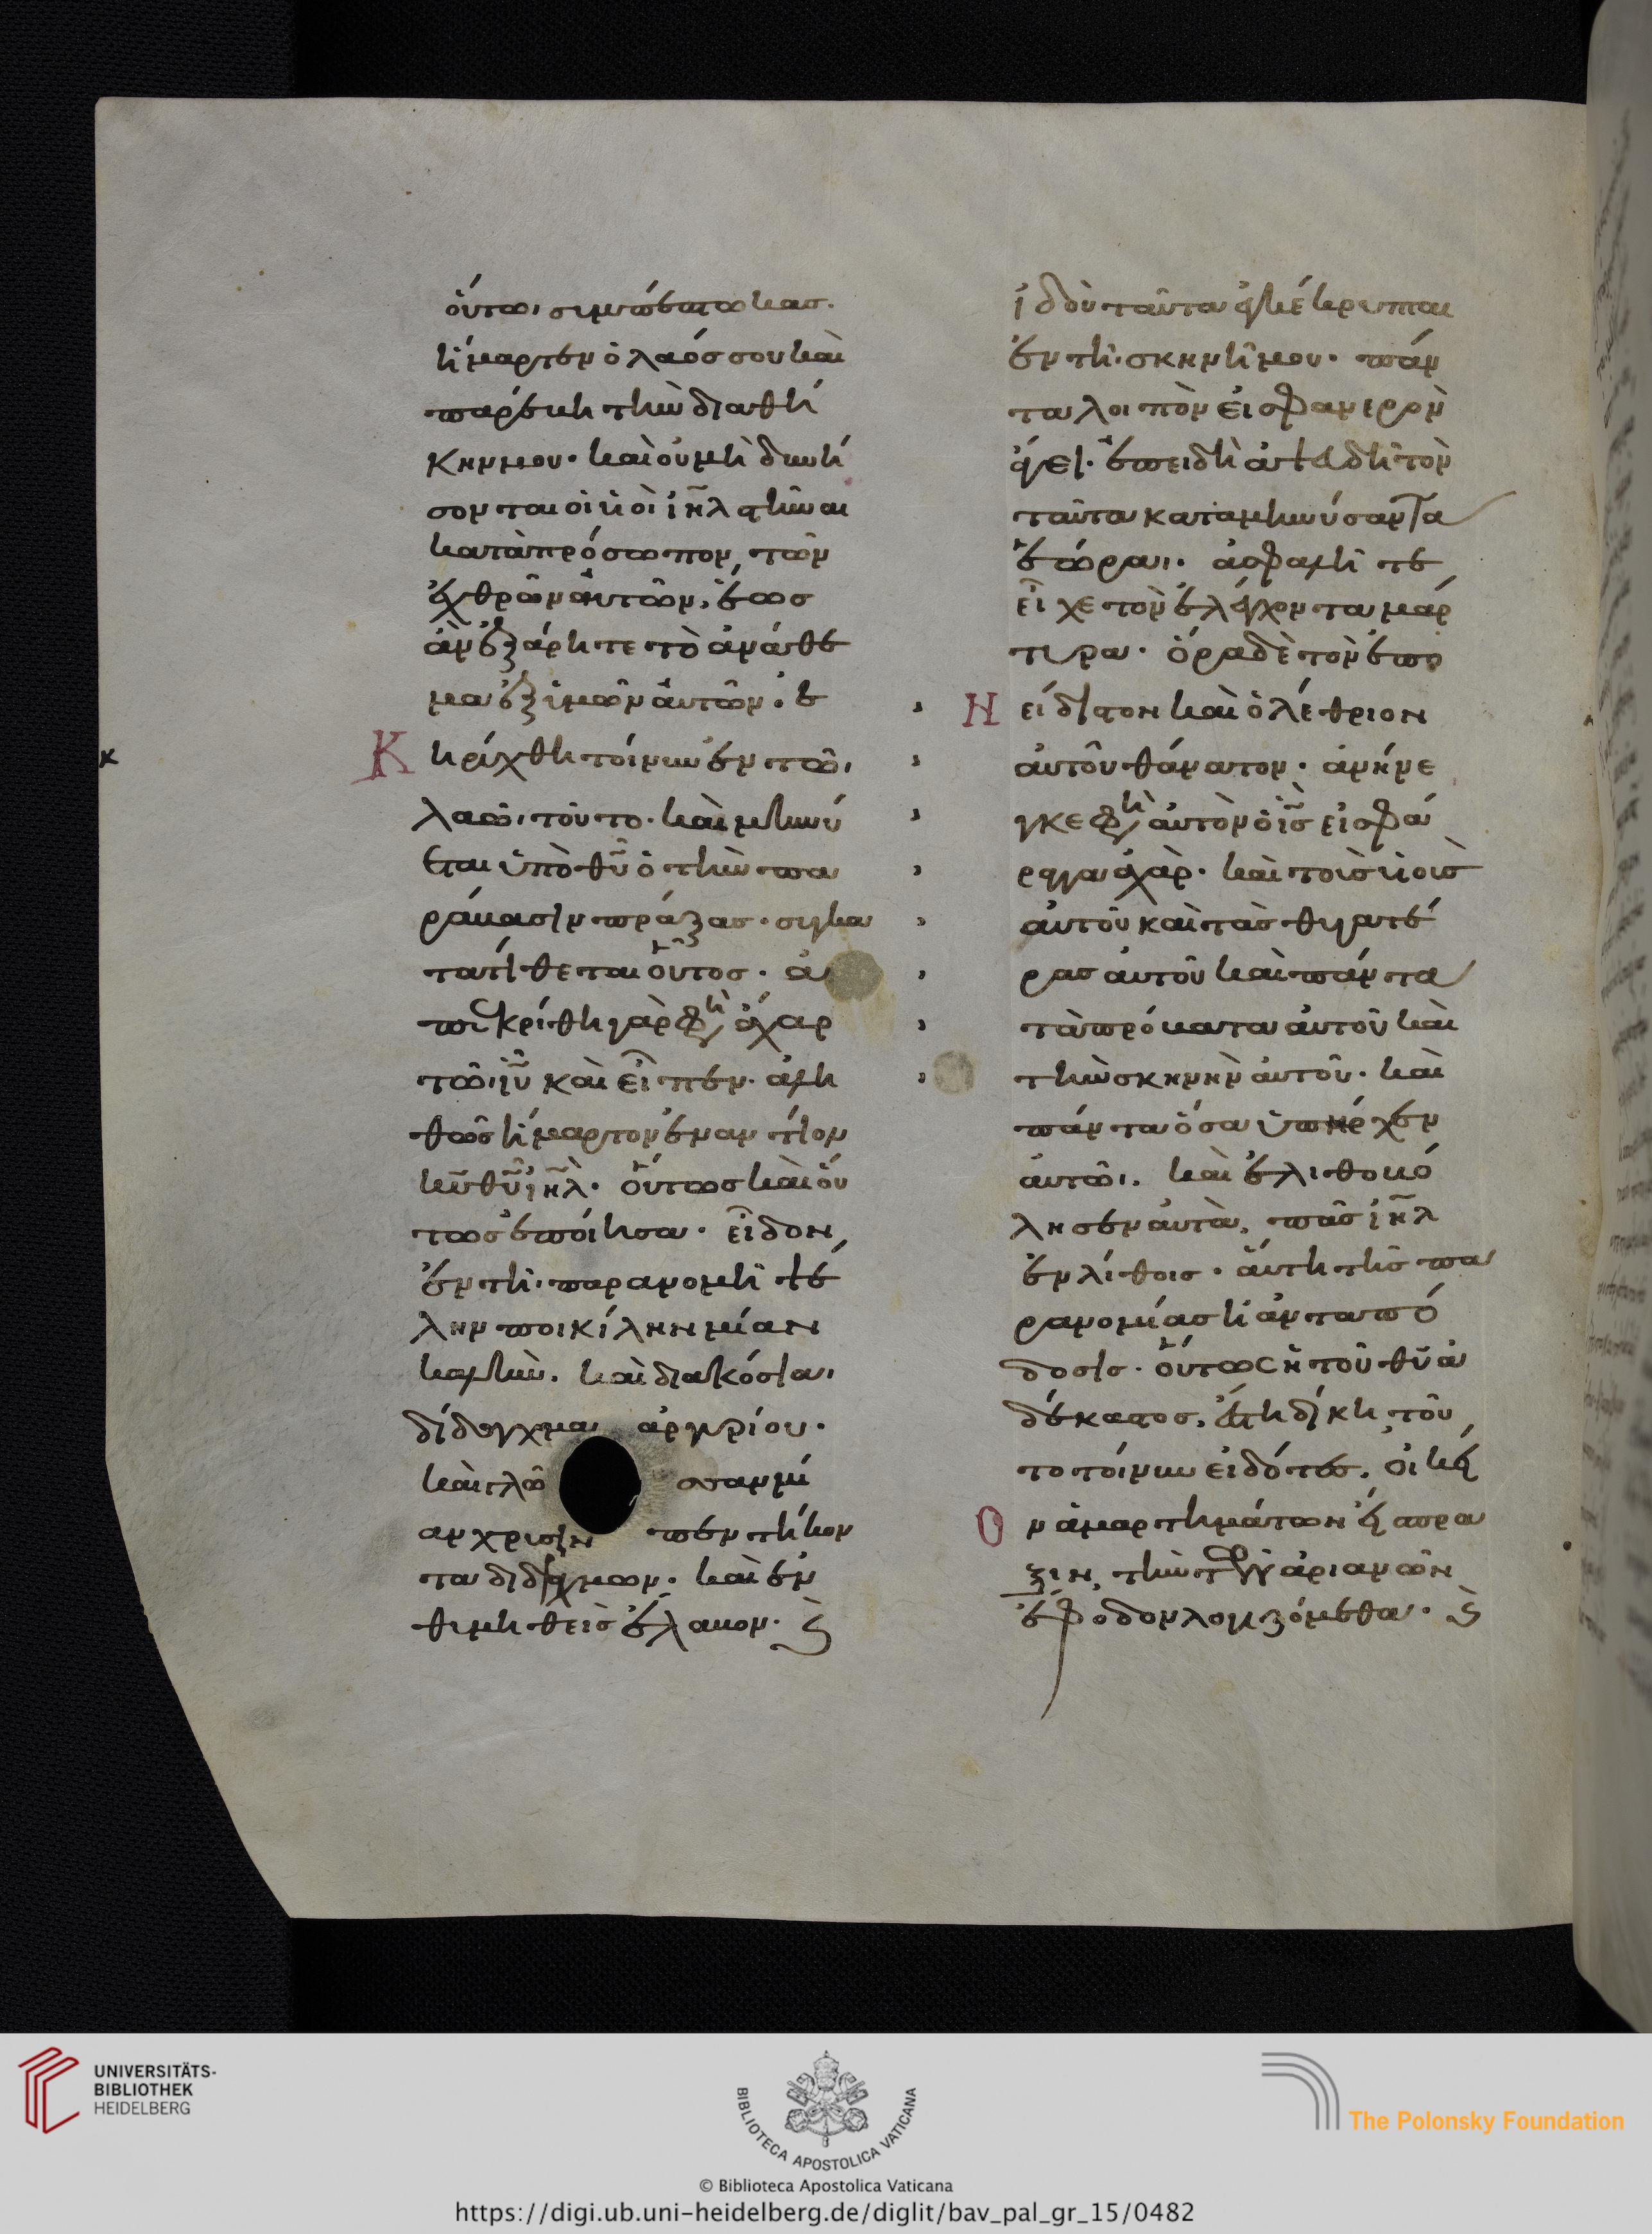 οὕτω, σιμπέπτωκας.
ἥμαρτεν ὁ λαόσ σου καὶ
παρέβη τὴν διαθή
κην μου· καὶ οὐ μὴ δυνή
σονται οἱ υἱοὶ ιη̅λ στῆναι
κατὰ πρόσωπον τῶν
ἐχθρῶν αὐτῶν, ἕωσ
ἂν ἐξάρητε τὸ ἀνάθε
μα ἐξ ὑμῶν αὐτῶν.
Κ ηρύχθη τοίνυν ἐν τῶ,
λαῶ, τοῦτο. καὶ μηνύ
εται ὑπὸ θυ̅ ὁ τὴν πα
ράβασιν πράξας. συγκα
τατίθεται οὗτοσ. ἀ
πεκρίθη γὰρ φησὶ ἄχαρ
τῶ, ιυ̅ καὶ εἶπεν. ἀλη
θῶσ ἥμαρτον ἐναντίον
κυ̅ θυ̅ ιη̅λ. οὕτωσ καὶ οὕ
τωσ ἐποίησα. εἶδον
ἐν τῆ, παρανομῆ
λην ποικίλην μίαν
καλὴν. καὶ διακόσια,
δίδραχμα ἀργυρίου.
καὶ γλῶ σσαν μί
αν χρισῆν πεντήκον
τα διδράχμων. καὶ ἐν
θιμηθεὶσ ἔλαβον.
ἰδοὺ ταῦτα ἐγκέκρυπται
ἐν τῆ, σκηνῆ μου. πάν
τα λοιπὸν εἰσ φανερὸν
ἄγει. ἐπειδὴ αὐτὸν
ταῦτα καταμηνύσαντα
ἑώρα,. ἀσφαλῆ τε
εἶχε τὸν ἐλέγχοντα μάρ
τυρα. ὅρα δὲ τὸν ἐπο
Ν είδιστον καὶ ὀλέθριον
αὐτοῦ θάνατον. ἀνήνε
γκε φησὶ αὐτὸν ὁ ισ̅ εἰσ φά
ραγγα ἀχὰρ. καὶ τοὺσ υἱοὺσ
αὐτοῦ καὶ τὰσ θυγατέ
ρασ αὐτοῦ καὶ πάντα
τὰ πρόβατα αὐτοῦ καὶ
τὴν σκηνὴν αὐτοῦ. καὶ
πάντα ὅσα ὑπῆρχεν
αὐτῶ,. καὶ ἐλιθοβό
λησεν αὐτὰ, πᾶσ ιη̅λ
ἐν λίθοισ. αὕτη τῆσ πα
ρανομίασ ἡ ἀνταπό
δοσισ. οὕτωσ ἡ τοῦ θυ̅ ἀ
δέκαστοσ, ἐστὶ δίκη τοῦ
το τοίνυν εἰδότεσ, οἰκεῖ
Ο ν ἁμαρτημάτων ἔσπρα
ξιν, τὴν τῶν ἀριανῶν
ἔφοδον λογιζόμεθα.
UNIVERSITÄTS-
BIBLIOTHEK
HEIDELBERG
BIBLIOTECA APOSTOLICA VATICANA
The Polonsky Foundation
© Biblioteca Apostolica Vaticana
https://digi.ub.uni-heidelberg.de/diglit/bav_pal_gr_15/0482